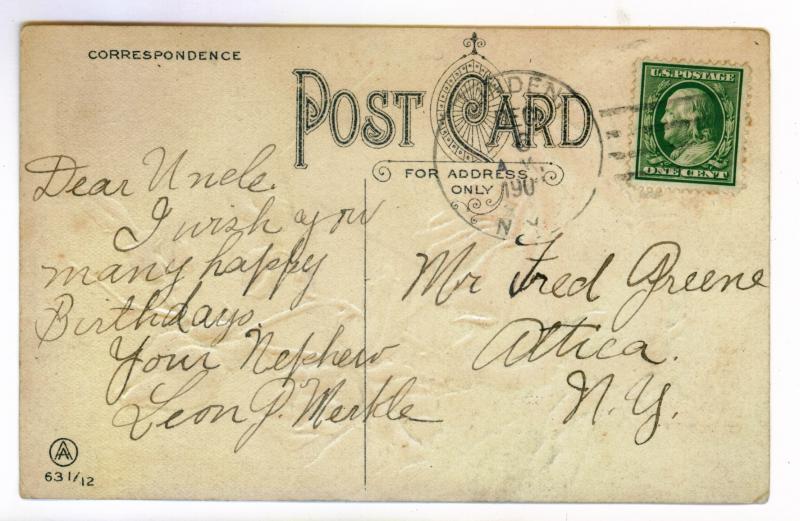 CORRESPONDENCE
POST CARD
FOR ADDRESS
ONLY
U.S. POSTAGE
ONE CENT
DEC
6
190
N.Y.
Dear Uncle.
I wish you
many happy
Birthdays.
Your Nephew
Leon J. Merkle
Mr Fred Greene
Attica.
N.Y.
AA
631/12